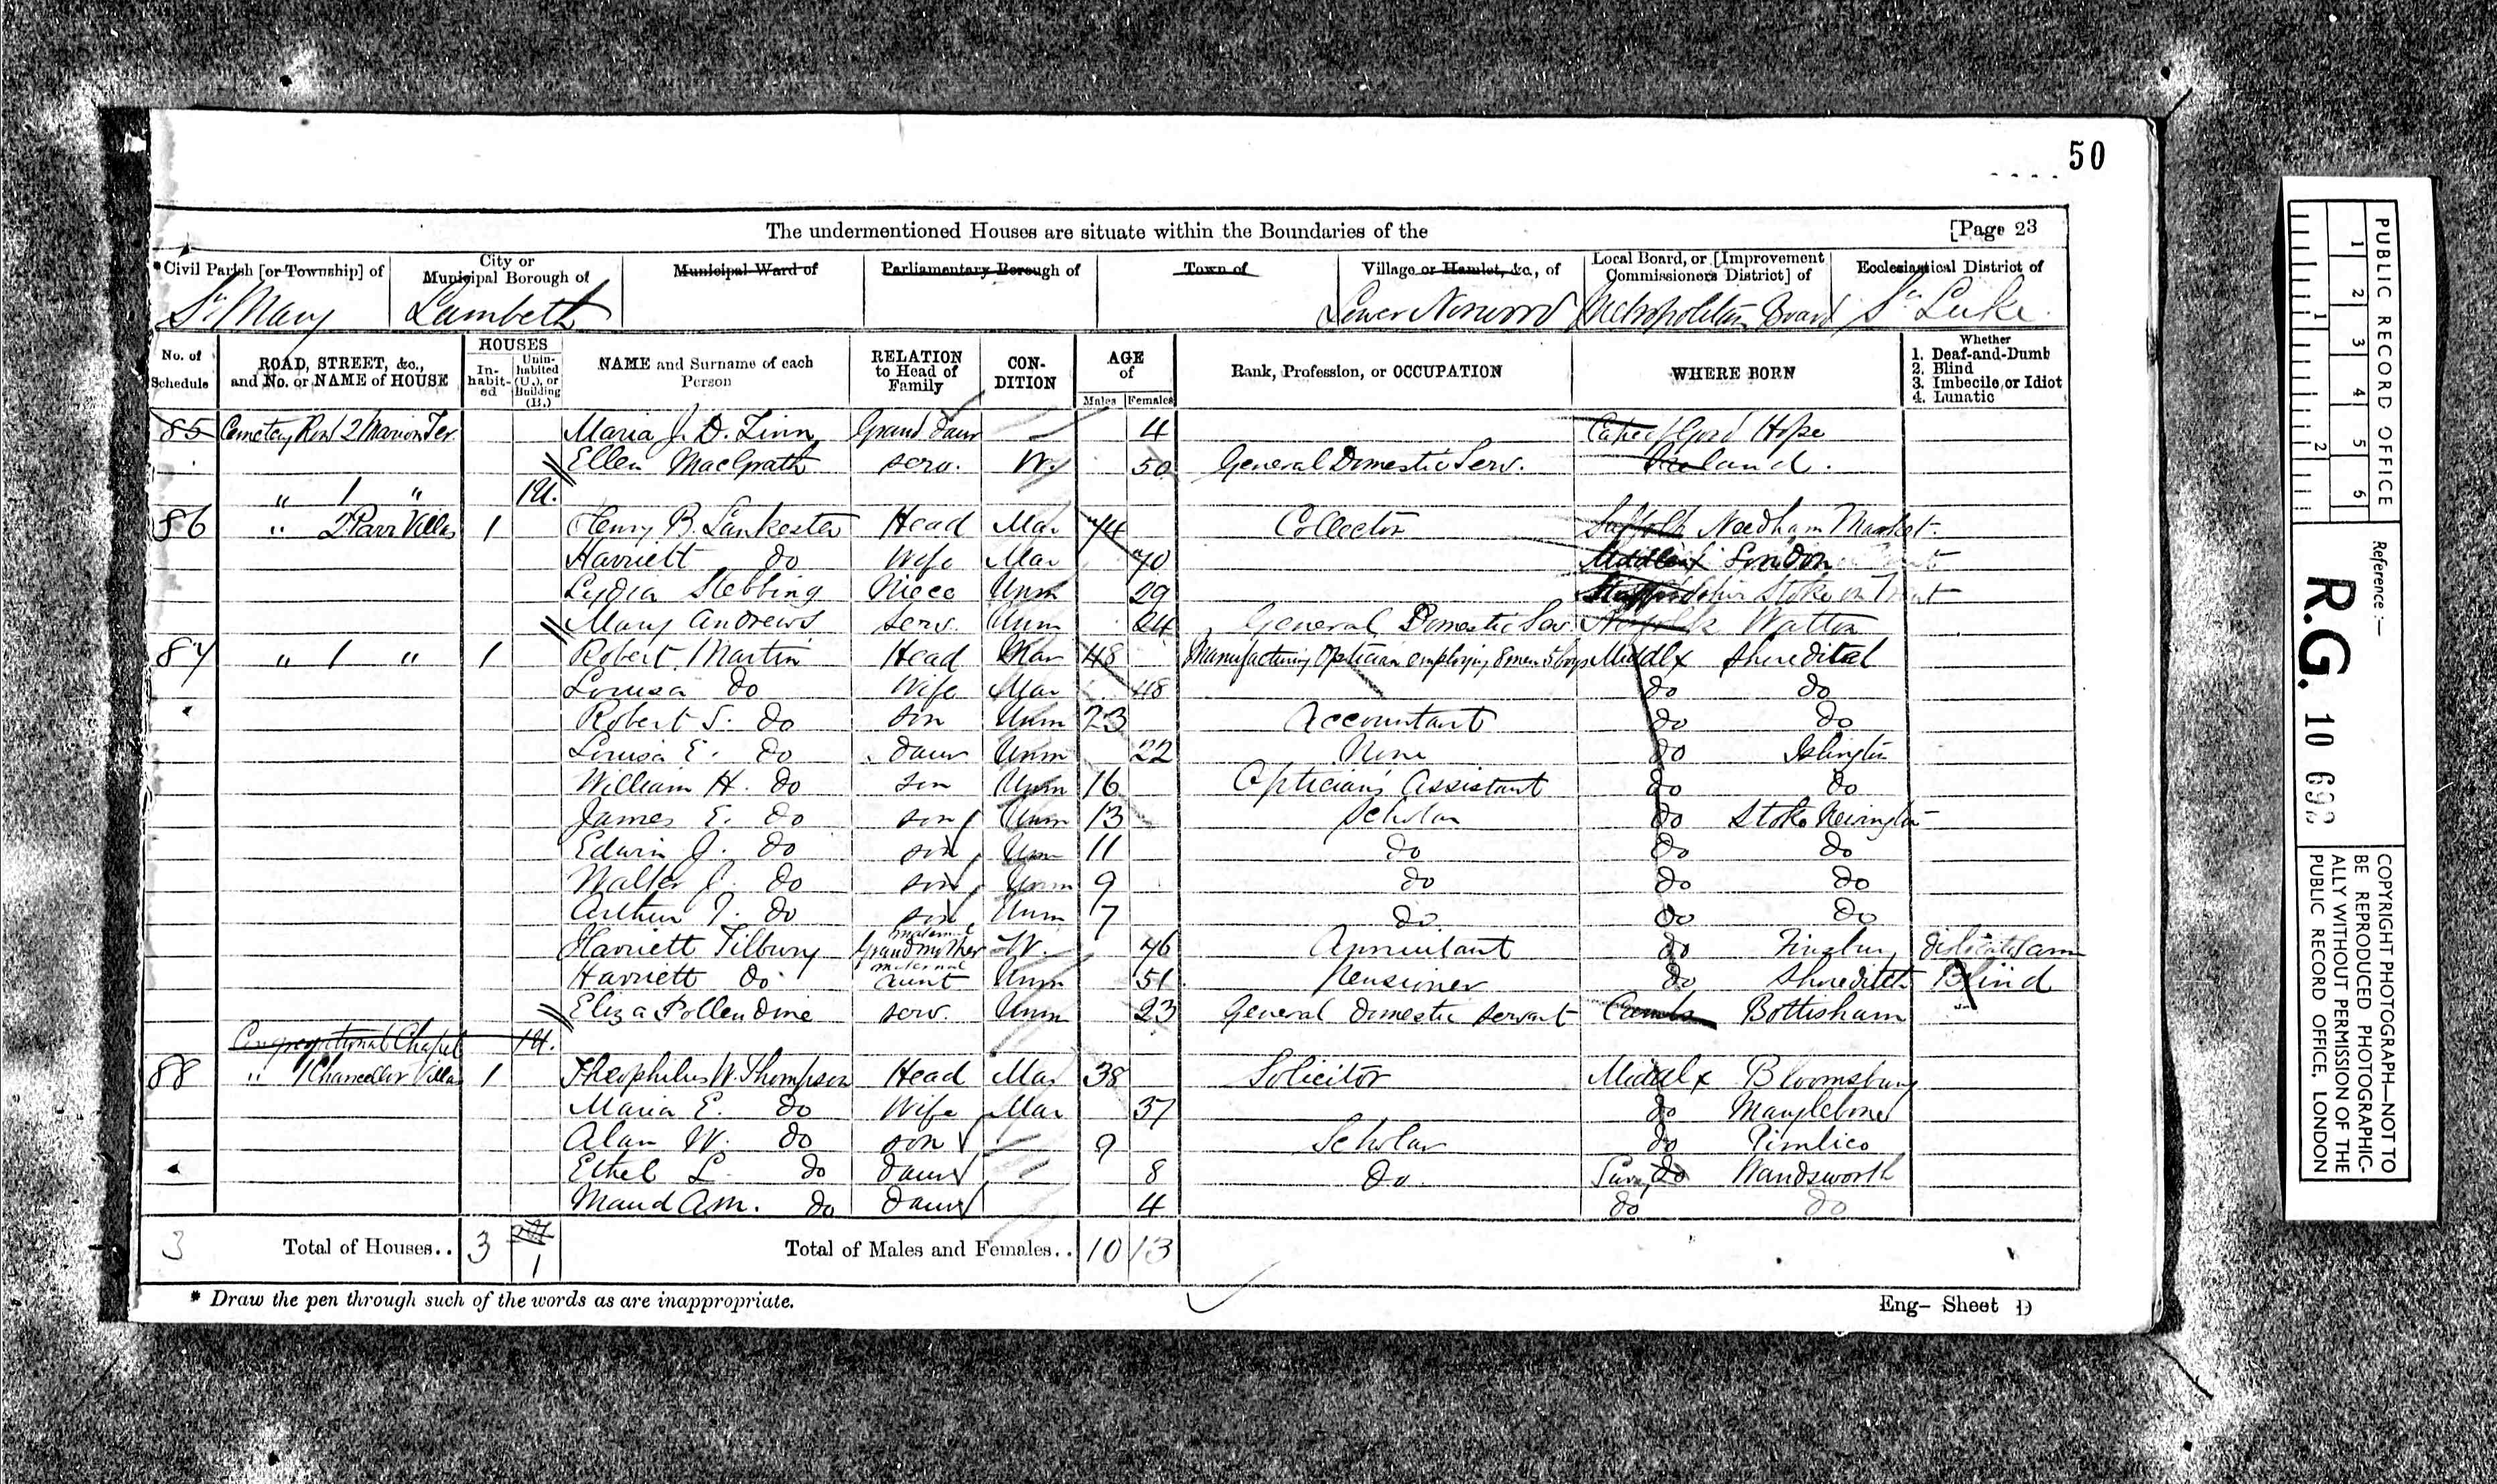 50
The undermentioned Houses are situate within the Boundaries of the [Page 23
Civil Parish [or Township] of City or Municipal Borough of Municipal Ward of Parliamentary Borough of Town of Village or Hamlet, &c., of Local Board, or [Improvement Commissioners District] of Ecclesiastical District of
St Mary Lambeth Lower Norwood Metropolitan Board St Luke
No. of Schedule ROAD, STREET, &c., and No. or NAME of HOUSE HOUSES Inhabited Uninhabited (U.), or Building (B.) NAME and Surname of each Person RELATION to Head of Family CONDITION AGE of Males Females Rank, Profession, or OCCUPATION WHERE BORN Whether 1. Deaf-and-Dumb 2. Blind 3. Imbecile or Idiot 4. Lunatic
85 Cemetery Road 2 Marion Ter. Maria J. D. Grand Daur 4 Cape of Good Hope
Ellen MacGrath serv. W. 50 General Domestic Serv. Ireland.
" 1 " 1U.
86 " 2 Parr Villas 1 Henry B. Lankester Head Mar 74 Collector Suffolk Needham Market
Harriett do Wife Mar 70 Middlesex London
Lydia Stebbing Niece Unm 29 Staffordshire Stoke on Trent
Mary Andrews Serv. Unm 24 General Domestic Serv. Norfolk Watton
87 " 1 " 1 Robert Martin Head Mar 48 Manufacturing Optician employing 8 men 5 boys Middlx Shoreditch
Louisa do Wife Mar 48 do do
Robert S. do son Unm 23 Accountant do do
Louisa E. do Daur Unm 22 None do Islington
William H. do son Unm 16 Optician's Assistant do do
James E. do son Unm 13 Scholar do Stoke Newington
Edwin J. do son Unm 11 do do do
Walter J. do son Unm 9 do do do
Arthur T. do son Unm 7 do do do
Harriett Tilbury maternal Grandmother W. 76 Annuitant do Finsbury
Harriett do maternal aunt Unm 51 Pensioner do Shoreditch Blind
Eliza Pollendine serv. Unm 23 General Domestic Servant Cambs Bottisham
Congregational Chapel 1U.
88 " 1 Chancellor Villas 1 Theophilus W. Thompson Head Mar 38 Solicitor Middlx Bloomsbury
Maria E. do Wife Mar 37 do Marylebone
Alan W. do son 9 Scholar do Pimlico
Ethel L. do Daur 8 Do Surrey do Wandsworth
Maud A.M. do Daur 4 do do
3 Total of Houses.. 3 1 Total of Males and Females.. 10 13
* Draw the pen through such of the words as are inappropriate. Eng- Sheet D
PUBLIC RECORD OFFICE
1 2 3 4 5 6
1 2
Reference :—
R.G. 10
COPYRIGHT PHOTOGRAPH—NOT TO
BE REPRODUCED PHOTOGRAPHIC-
ALLY WITHOUT PERMISSION OF THE
PUBLIC RECORD OFFICE, LONDON